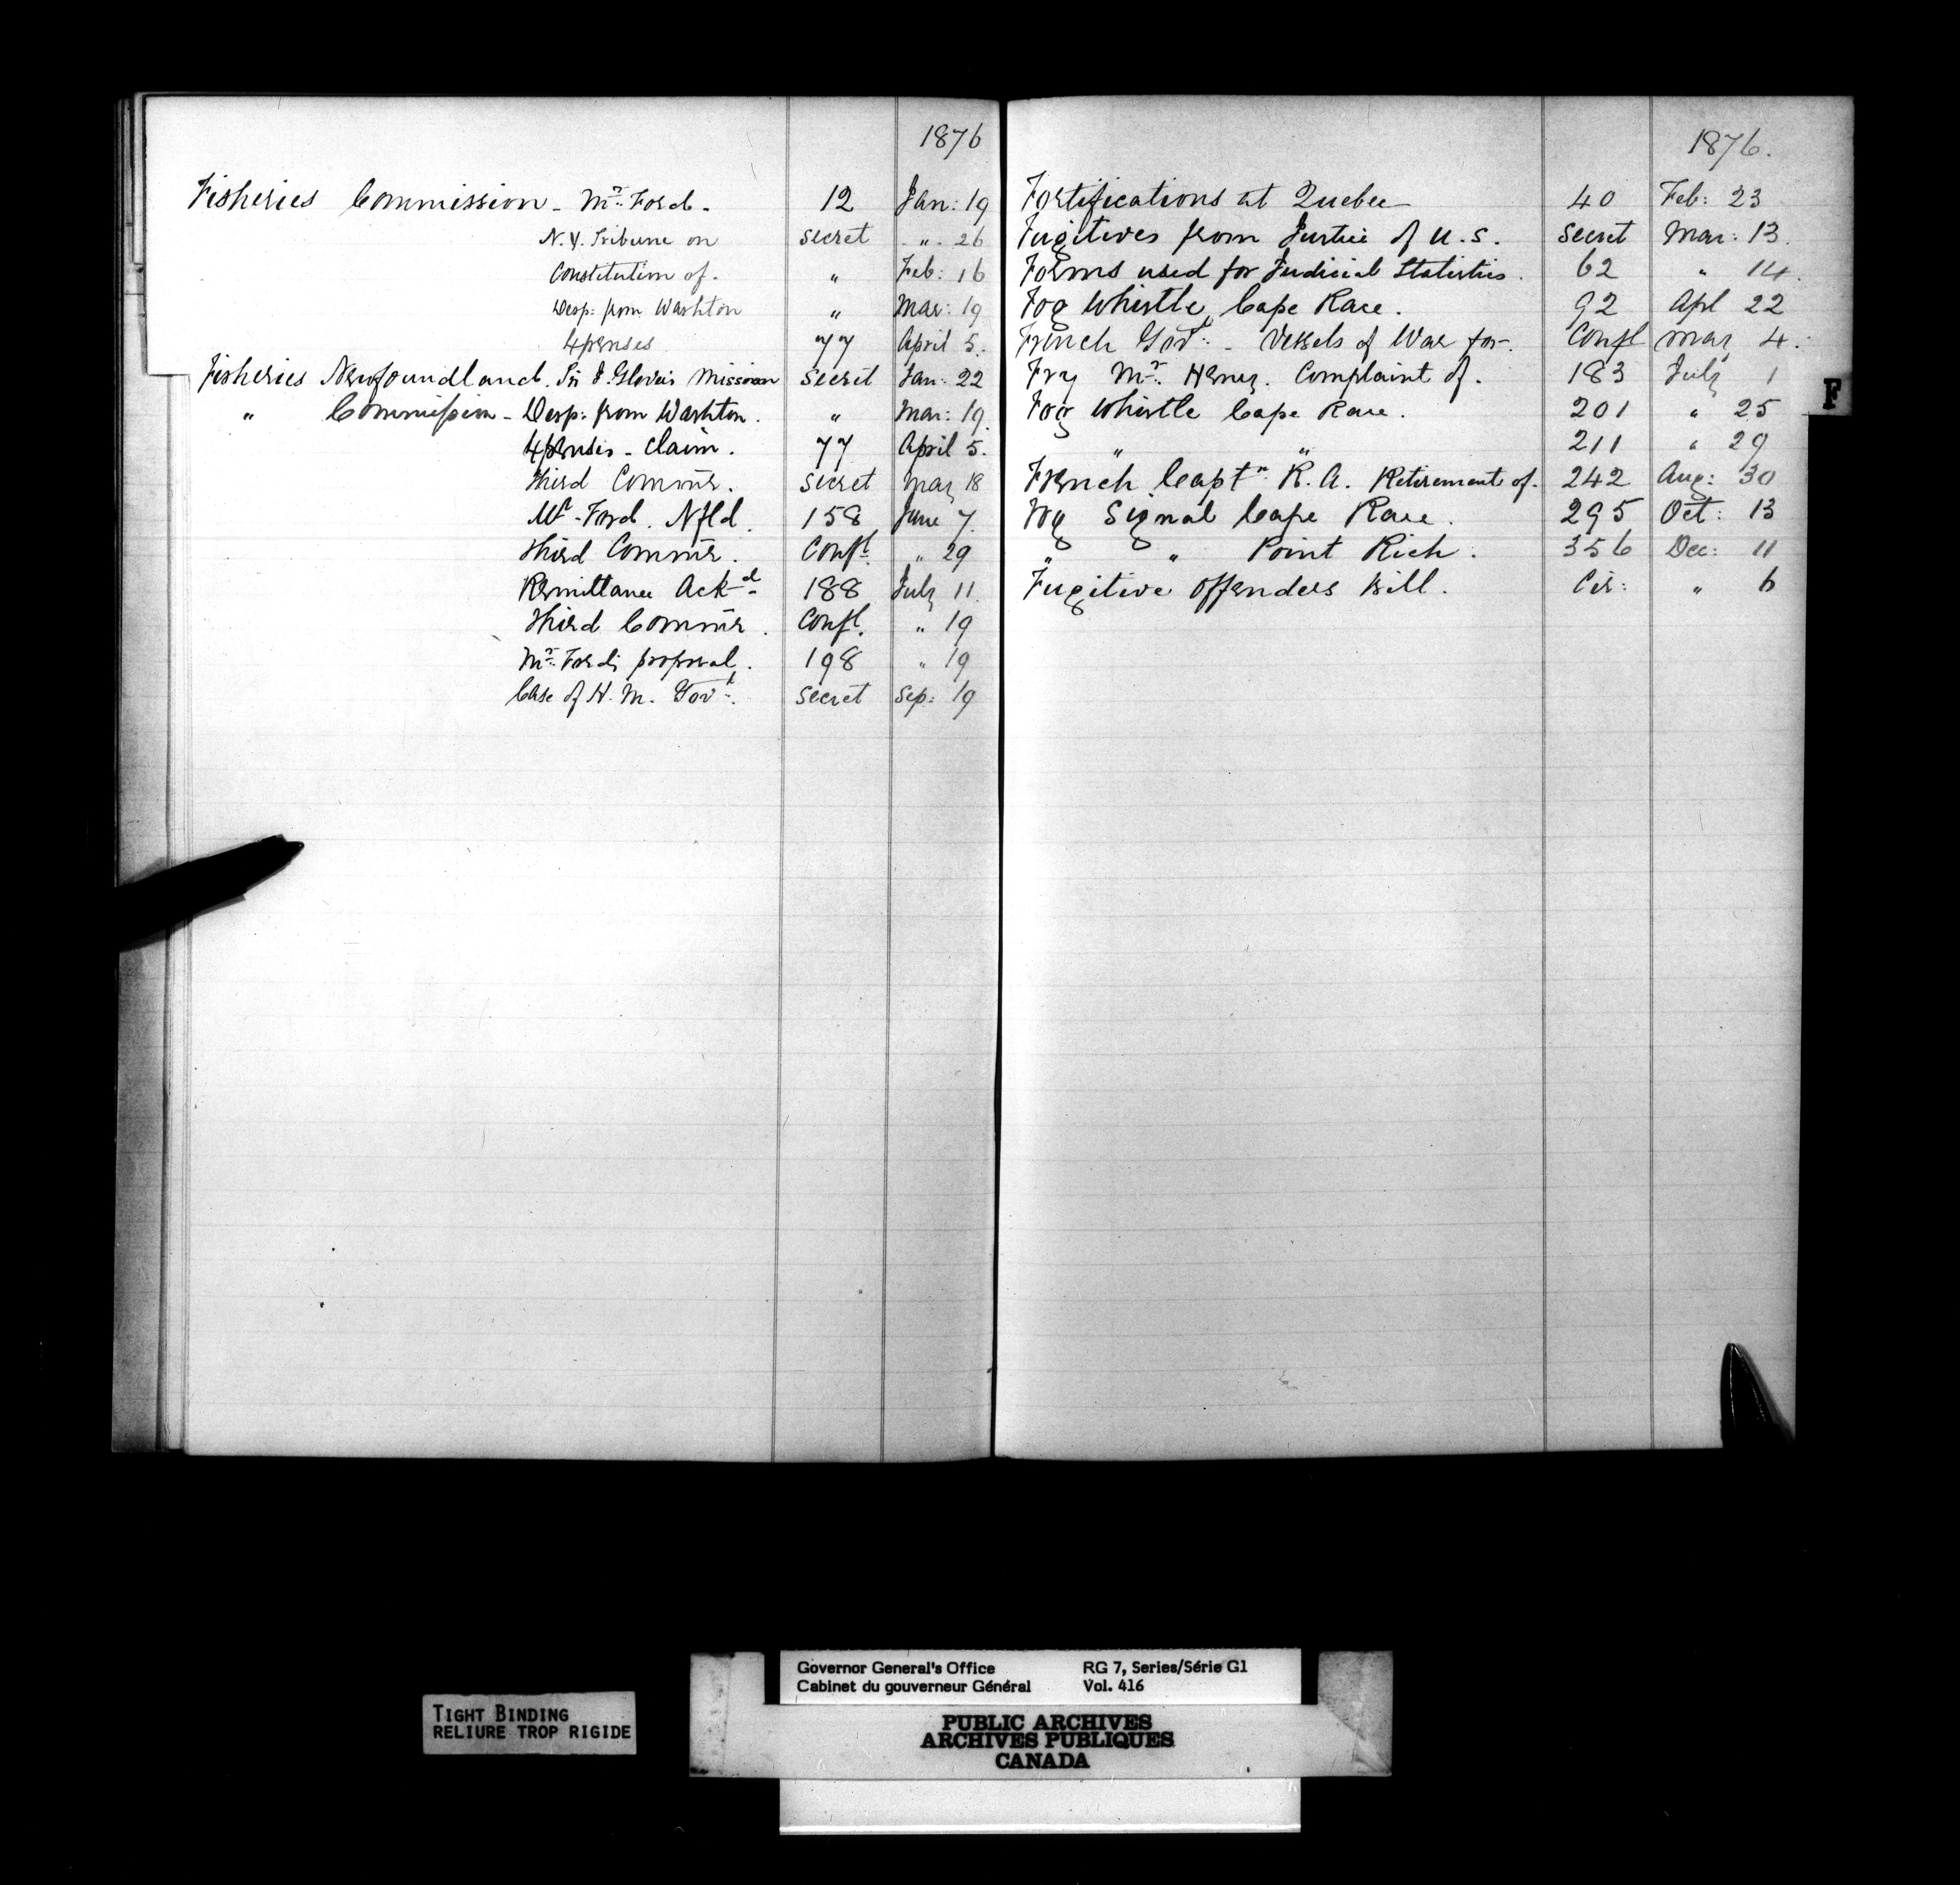 1876
Fisheries Commission - Mr. Ford - 12 Jan: 19
N.Y. Tribune on Secret " 26
Constitution of. " Feb: 16
Desp: from Washton " Mar: 19
Expenses 77 April 5.
Fisheries Newfoundland. Sir J. Glover's Mission Secret Jan: 22
" Commission - Desp: from Washton. " Mar: 19.
Expenses - Claim. 77 April 5.
Third Commr. Secret May 18
Mr. Ford. Nfld. 158 June 7.
Third Commr. Confl. " 29
Remittance Ackd. 188 July 11.
Third Commr. Confl. " 19
Mr. Ford's proposal. 198 " 19
Case of H. M. Govt. Secret Sep: 19
1876.
Fortifications at Quebec 40 Feb: 23
Fugitives from Justice of U.S. Secret Mar: 13.
Forms used for Judicial Statistics. 62 " 14.
Fog Whistle, Cape Race. 92 Apl 22
French Govt. - Vessels of War for. Confl May 4.
Fry Mr. Henry. Complaint of. 183 July 1
Fog Whistle Cape Race. 201 " 25
" " 211 " 29
French Captn. R.A. Retirement of. 242 Aug: 30
Fog Signal Cape Race. 295 Oct: 13
" " Point Rich. 356 Dec: 11
Fugitive Offenders Bill. Cir: " 6
F
TIGHT BINDING
RELIURE TROP RIGIDE
Governor General's Office RG 7, Series/Série G1
Cabinet du gouverneur Général Vol. 416
PUBLIC ARCHIVES
ARCHIVES PUBLIQUES
CANADA